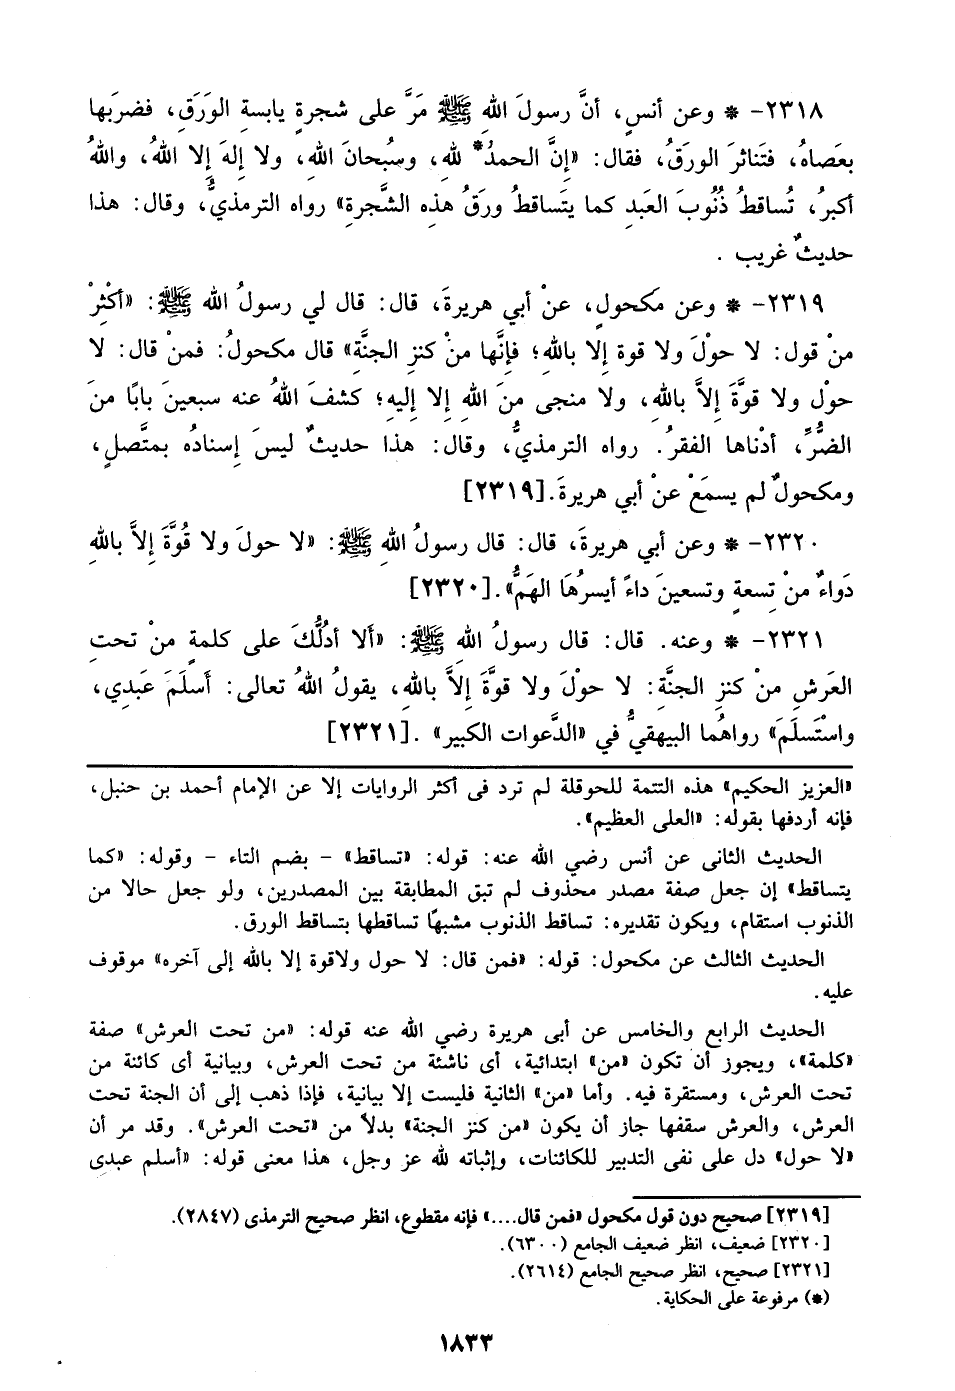 ٢٣١٨- * وعن أنسٍ، أنَّ رسولَ اللهِ ﷺ مَرَّ على شجرةٍ يابسةِ الوَرَقِ، فضرَبها
بعَصاهُ، فتَناثرَ الورقُ، فقال: «إنَّ الحمدُ* للهِ، وسُبحانَ اللهِ، ولا إلهَ إلا اللهُ، واللهُ
أكبرُ، تُساقطُ ذُنُوبَ العَبدِ كما يتَساقطُ ورقُ هذهِ الشَّجرةِ» رواه الترمذيُّ، وقال: هذا
حديثٌ غريب .
٢٣١٩- * وعن مكحولٍ، عنْ أبي هريرةَ، قال: قال لي رسولُ اللهِ ﷺ: «أكْثِرْ
منْ قول: لا حوْلَ ولا قوة إلا باللهِ؛ فإنَّها منْ كنزِ الجنَّةِ» قال مكحولُ: فمنْ قال: لا
حوْل ولا قوَّةَ إلاَّ باللهِ، ولا منجى منَ اللهِ إلا إليهِ؛ كشفَ اللهُ عنه سبعينَ بابًا منَ
الضُّرِّ، أدْناها الفقرُ. رواه الترمذيُّ، وقال: هذا حديثٌ ليسَ إسنادُه بمتَّصلٍ،
ومكحولٌ لم يسمَعْ عنْ أبي هريرةَ.[٢٣١٩]
٢٣٢٠- * وعن أبي هريرةَ، قال: قال رسولُ اللهِ ﷺ: «لا حولَ ولا قُوَّةَ إلاَّ باللهِ
دَواءٌ منْ تِسعةٍ وتسعينَ داءً أيسرُهَا الهَمُّ».[٢٣٢٠]
٢٣٢١- * وعنه. قال: قال رسولُ اللهِ ﷺ: «أَلا أدُلُّكَ على كلمةٍ منْ تحتِ
العَرشِ منْ كنزِ الجنَّةِ: لا حوْلَ ولا قوَّةَ إلاَّ باللهِ، يقولُ اللهُ تعالى: أَسلَمَ عَبدي،
واسْتَسلَمَ» رواهُما البيهقيُّ في «الدَّعوات الكبير» .[٢٣٢١]
«العزيز الحكيم» هذه التتمة للحوقلة لم ترد فى أكثر الروايات إلا عن الإمام أحمد بن حنبل،
فإنه أردفها بقوله: «العلى العظيم».
الحديث الثانى عن أنس رضي الله عنه: قوله: «تساقط» - بضم التاء - وقوله: «كما
يتساقط» إن جعل صفة مصدر محذوف لم تبق المطابقة بين المصدرين، ولو جعل حالا من
الذنوب استقام، ويكون تقديره: تساقط الذنوب مشبهًا تساقطها بتساقط الورق.
الحديث الثالث عن مكحول: قوله: «فمن قال: لا حول ولاقوة إلا بالله إلى آخره» موقوف
عليه.
الحديث الرابع والخامس عن أبى هريرة رضي الله عنه قوله: «من تحت العرش» صفة
«كلمة»، ويجوز أن تكون «من» ابتدائية، أى ناشئة من تحت العرش، وبيانية أى كائنة من
تحت العرش، ومستقرة فيه. وأما «من» الثانية فليست إلا بيانية، فإذا ذهب إلى أن الجنة تحت
العرش، والعرش سقفها جاز أن يكون «من كنز الجنة» بدلاً من «تحت العرش». وقد مر أن
«لا حول» دل على نفى التدبير للكائنات، وإثباته لله عز وجل، هذا معنى قوله: «أسلم عبدى
[٢٣١٩] صحيح دون قول مكحول «فمن قال....» فإنه مقطوع، انظر صحيح الترمذى (٢٨٤٧).
[٢٣٢٠] ضعيف، انظر ضعيف الجامع (٦٣٠٠).
[٢٣٢١] صحيح، انظر صحيح الجامع (٢٦١٤).
(*) مرفوعة على الحكاية.
١٨٣٣